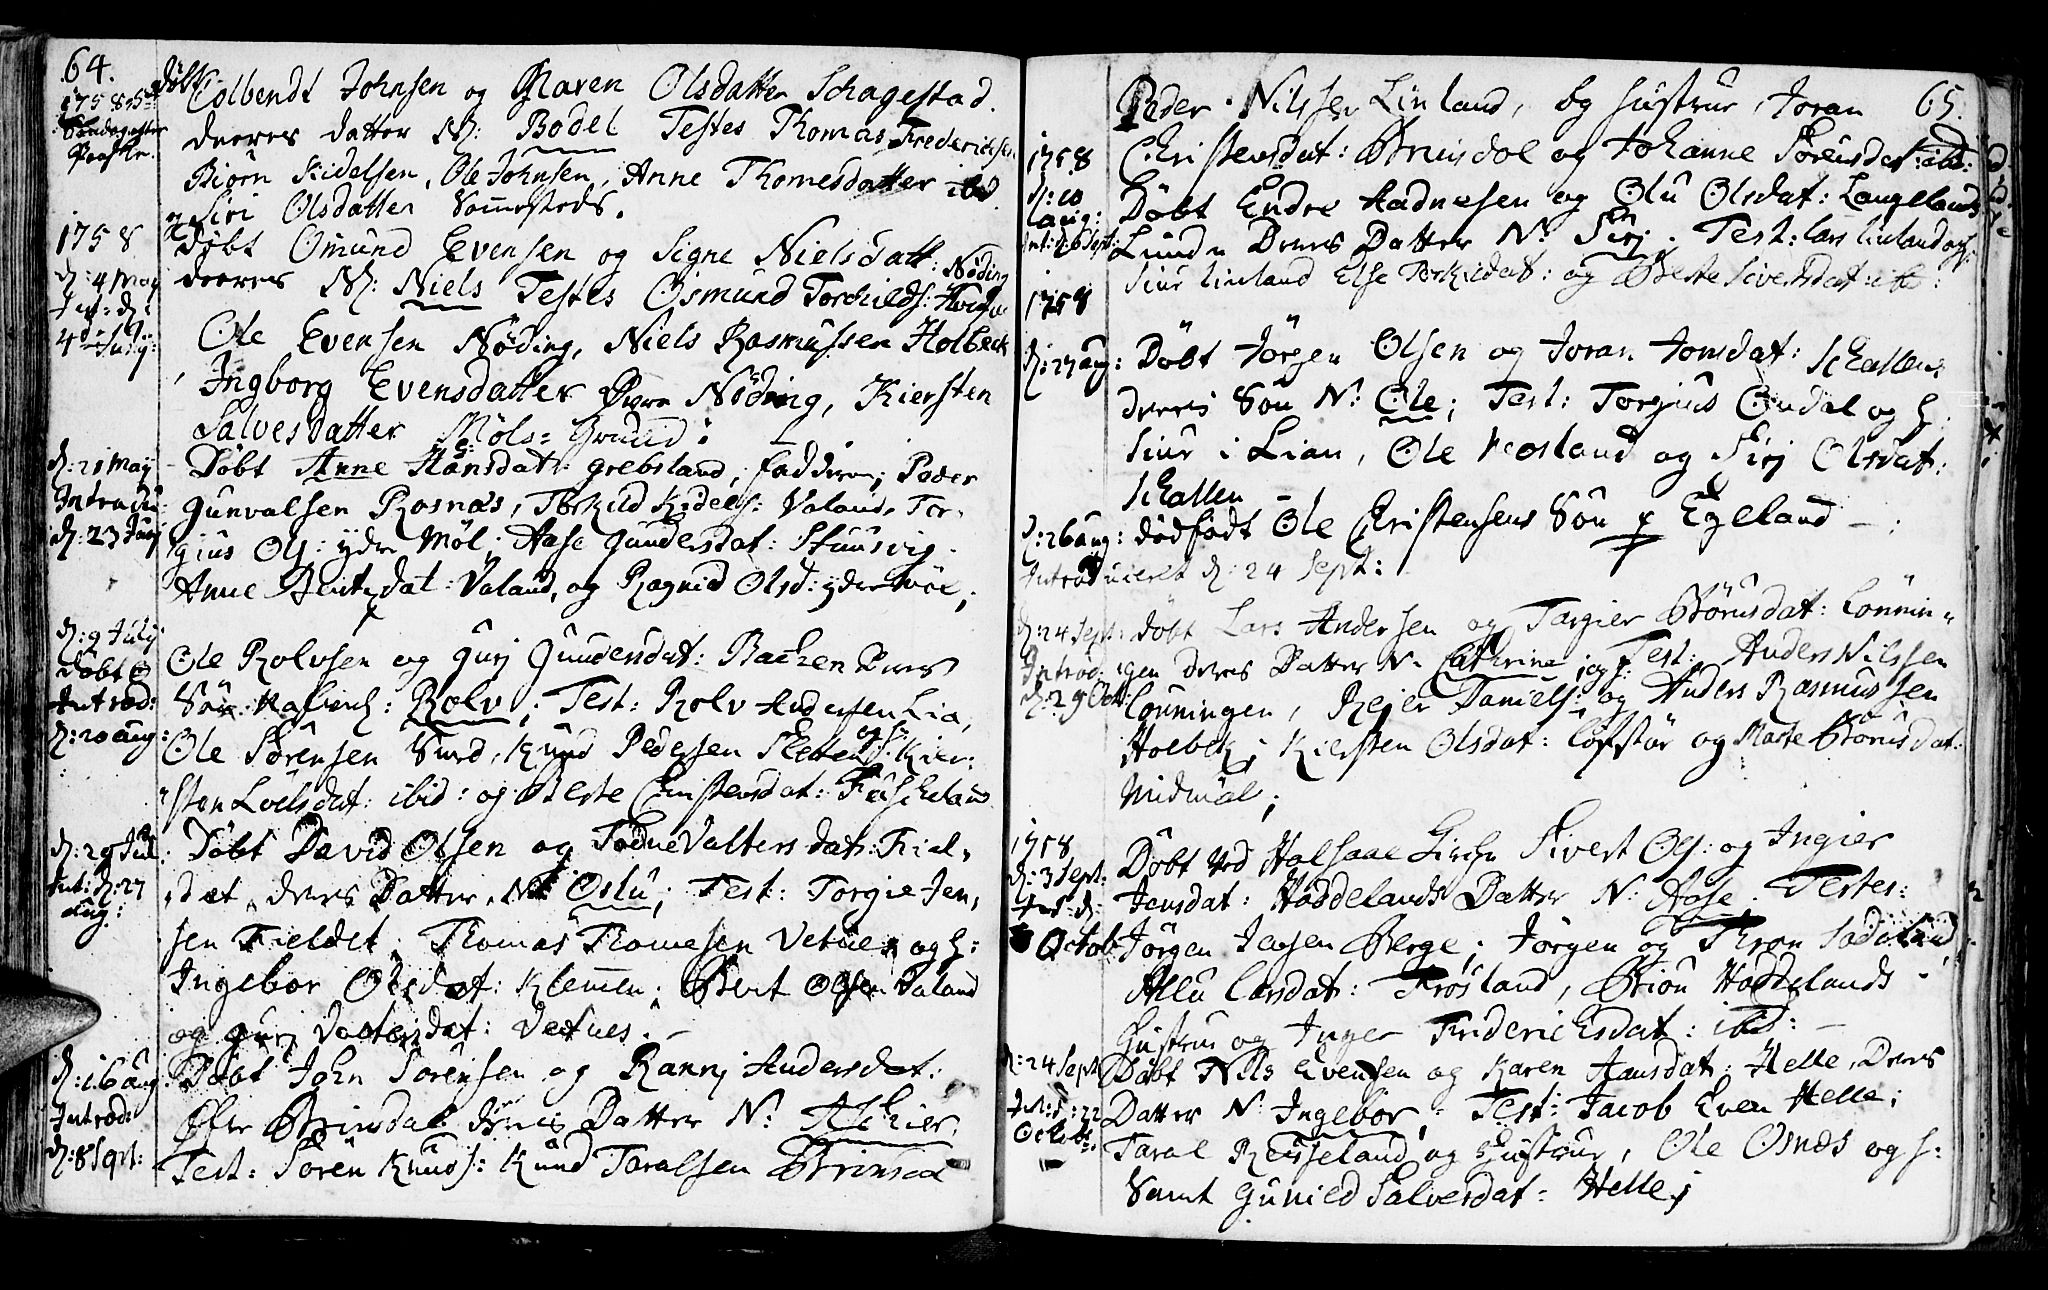 64.
1758. 5te
Søndag efter
Paaske.
døbt Colbendt Johnsen og Maren Olsdatter Schagestad.
deeres datter N: Bodel Testes Thomas Frederichsen
Biørn Kidelsen, Ole Johnsen, Anne Thomesdatter ibd.
Siri Olsdatter Sommesteds.
1758
d: 4 May
Int: d:
4de July:
døbt Omund Evensen og Signe Nielsdatt: Nøding
deeres N: Niels Testes Osmund Torchilds:
Ole Evensen Nøding, Niels Rasmussen Holbeck
Ingborg Evensdatter Nøding, Kiersten
Salvesdatter Møls=Grund:
d: 21 May
Introdu:
d: 23 Juny
Døbt Anne Hansdat: Grebsland, faddere; Peder
Gunvalsen Rosnæs, Torkild Kidels: Valand, Tor-
gius Ols: ydre Møl; Aase Gundersdat: Stuusvig.
Anne Bentsdat: Valand, og Ragnild Olsd: ydre Møl;
d: 9 July
døbt
Introd:
d: 20 aug:
Ole Rolvsen og Gurj Gundersdat: Bachen deres
Søn: Rolv; Test: Rolv Andersen Lia,
Ole Sørensen Knud Pedersen og H: Kier-
sten Loelsdat: ibid: og Berte Christensdat:
d: 29 Jul:
Int: d: 27
aug:
Døbt David Olsen og Tødne Valtersdat: Fiel-
det, deres Datter N: Oslu; Test: Torgie Jen-
sen Fieldet, Thomas Thomesen Vetnes og H:
Ingebor Olsdat: Klemmen; Bent Olsen Valand
og Gurj Valtersdat: Vetnes.
d: 16 aug:
Introd:
d: 8 Sept:
Døbt John Sørensen og Rannj Andersdat:
Øfre Brinsdal deres Datter N: Aschier,
Test: Søren Knuds: Knud Taralsen Brinsdal
65.
Peder Nilssen Linland, og hustrue, Joran
Christensdat: Brinsdal og Johanne Sørensdat: ibd:
1758
d: 10
aug:
Døbt Endre Aadnesen og Olu Olsdat: Langelands
Lunde Deres Datter N: Sirj. Test: Lars Linland og H:
Siur Linland Else Torkidsdat: og Berte Sivertsdat: ibd:
1758
d: 27 aug:
Døbt Jørgen Olsen og Joran Jonsdat: Schallen:
deres Søn N: Ole; Test: Torjus Omdal og H.
Siur i Lian, Ole Roesland og Sirj Olsdat:
Schallen
d: 26 aug:
dødfødt Ole Christensens Søn Egeland
Introduceret d: 24 Sept:
d: 24 Sept:
Introd:
d: 29 Octb:
døbt Lars Andersen og Targier Biørnsdat: Lønnin-
gen deres Datter N. Cathrine; Test: Anders Nilssen
Lønningen, og H: Rejer Daniels: og Anders Rasmussen
Holbek; Kiersten Olsdat: Løfstør og Marte Biørnsdat:
Midmøl;
1758
d: 3 Sept:
Int: d:
Octob:
Døbt ved Halsaae Kirche Sivert Ols: og Ingier
Jensdat: Høddelands Datter N: Aase. Testes:
Jørgen Jensen Berge; Jørgen og Thron Sødeland,
Allu Larsdat: Frøsland, Biøn Høddelands
Hustrue og Inger Friderichsdat: ibd:
d: 24 Sept:
Int: d: 22
Octobr.
Døbt Nils Evensen og Karen Hansdat: Helle, deres
Datter N: Ingebor; Test: Jacob Even Helle;
Taral Røsseland og Hustrue, Ole Osnæs og H:
Samt Gunild Salvesdat: Helle;